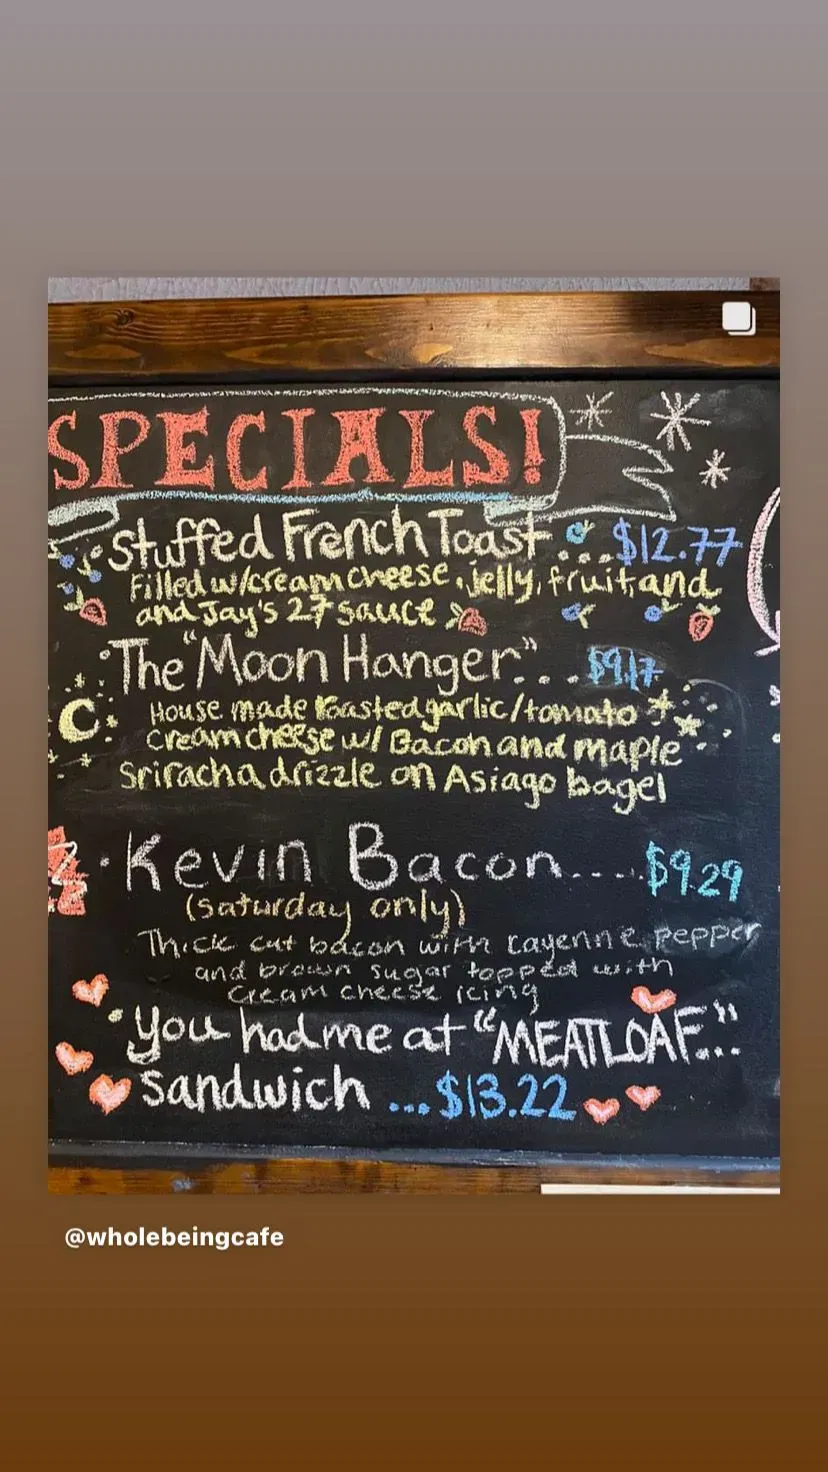 SPECIALS!
Stuffed French Toast ....$12.77
Filled w/cream cheese, jelly, fruit, and
and Jay's 27 sauce
The "Moon Hanger"... $9.17
House made Roasted garlic/tomato
cream cheese w/ Bacon and maple
Sriracha drizzle on Asiago bagel
Kevin Bacon.....$9.29
(saturday only)
Thick cut bacon with cayenne pepper
and brown sugar topped with
cream cheese icing
You had me at "MEATLOAF..."
Sandwich ...$13.22
@wholebeingcafe